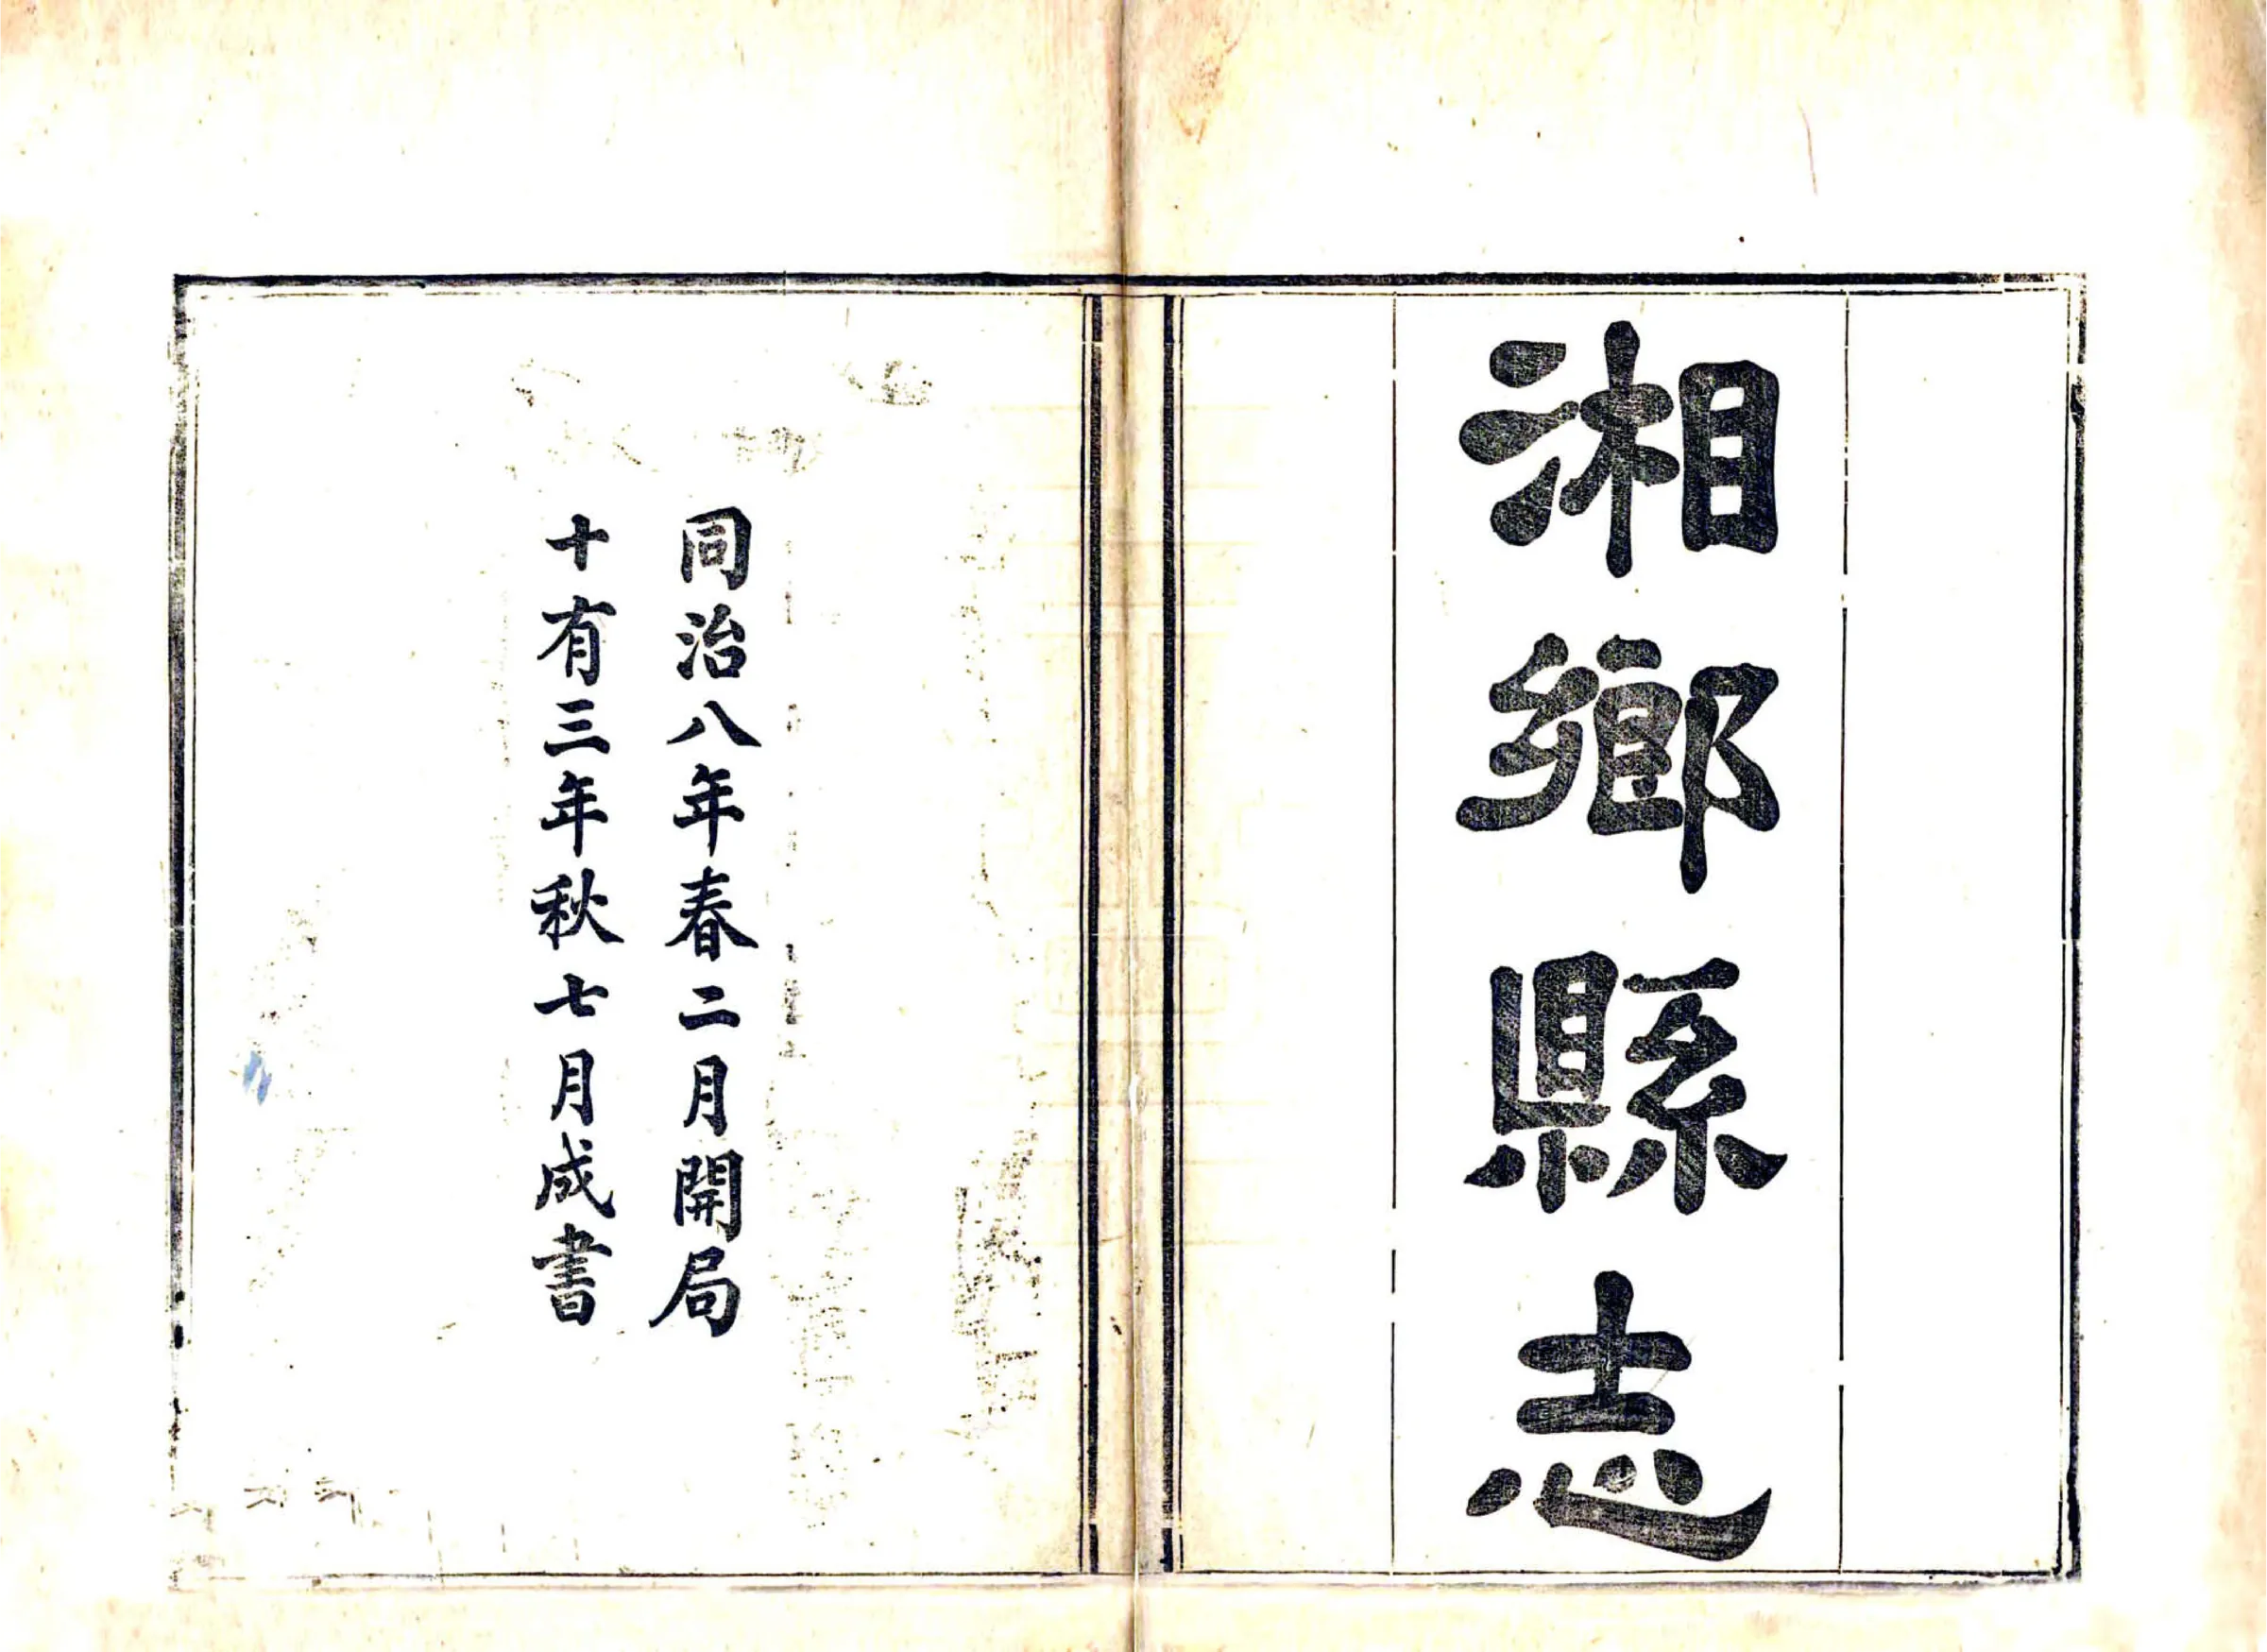 湘鄉縣志
同治八年春二月開局
十有三年秋七月成書